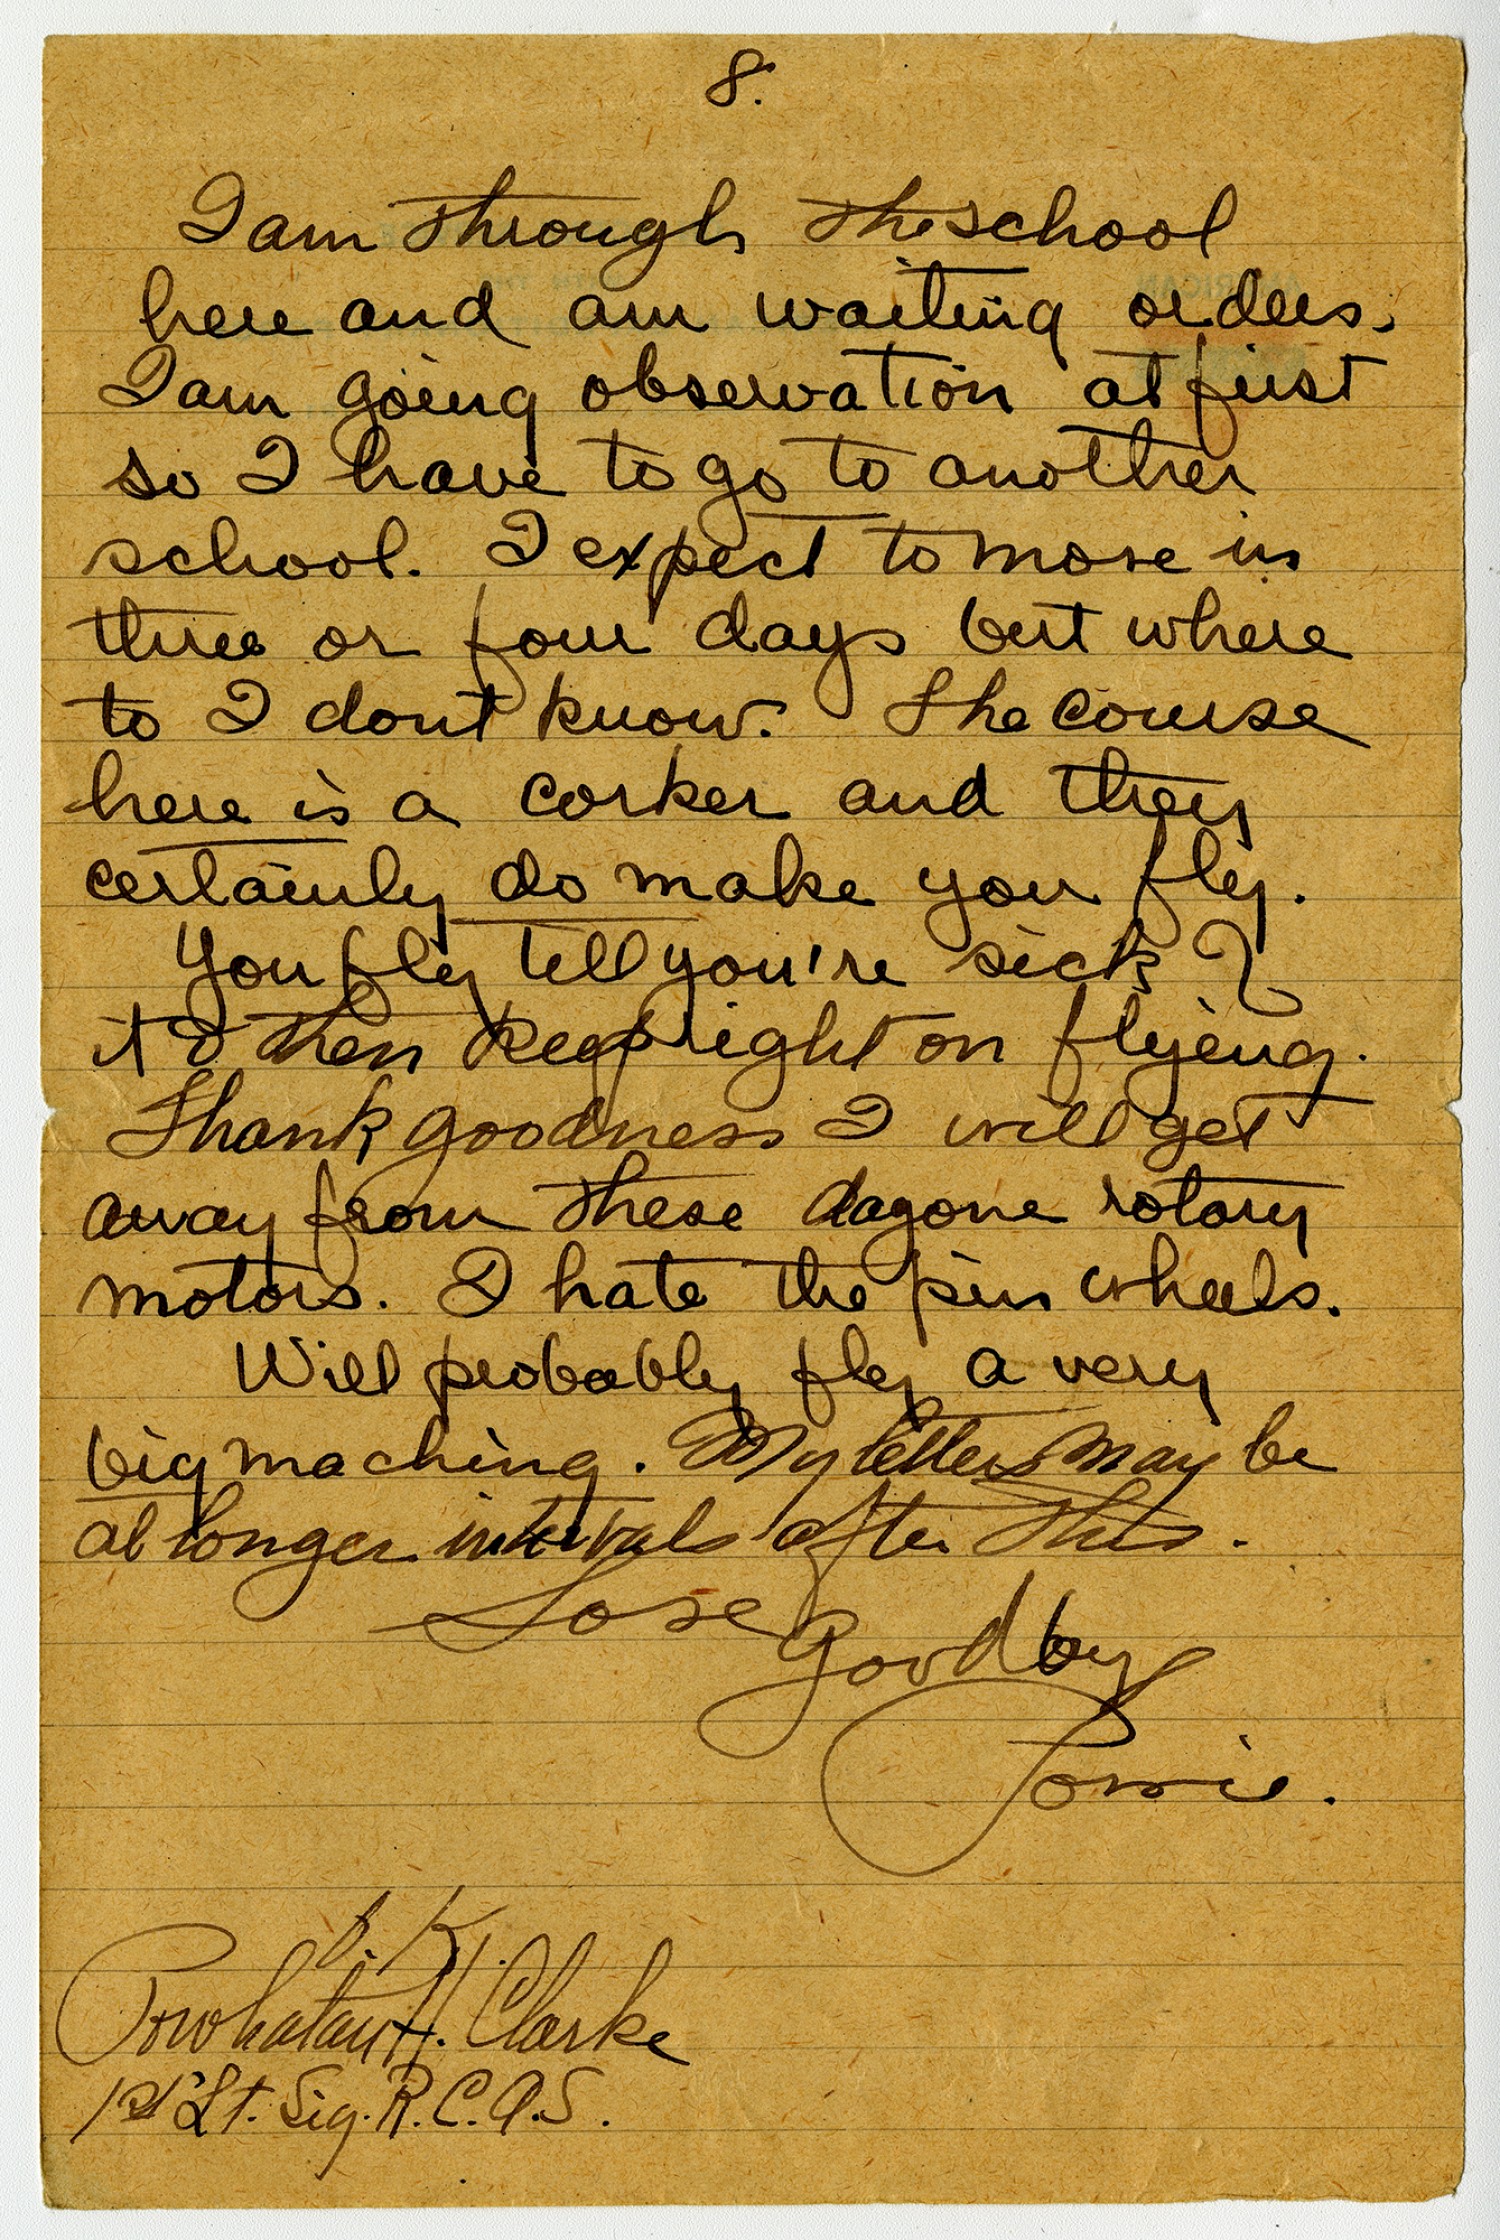 8.
I am through the school
here and am waiting orders.
I am going observation at first
so I have to go to another
school. I expect to move in
three or four days but where
to I dont know. The course
here is a corker and they
certainly do make you fly.
You fly till you're sick of
it & then keep right on flying.
Thank goodness I will get
away from these dagone rotary
motors. I hate the pin wheels.
Will probably fly a very
big maching. My letters may be
at longer intervals after this.
Love
goodby
Powie.
O.K.
Powhatan H. Clarke
1st Lt. Sig. R.C.A.S.